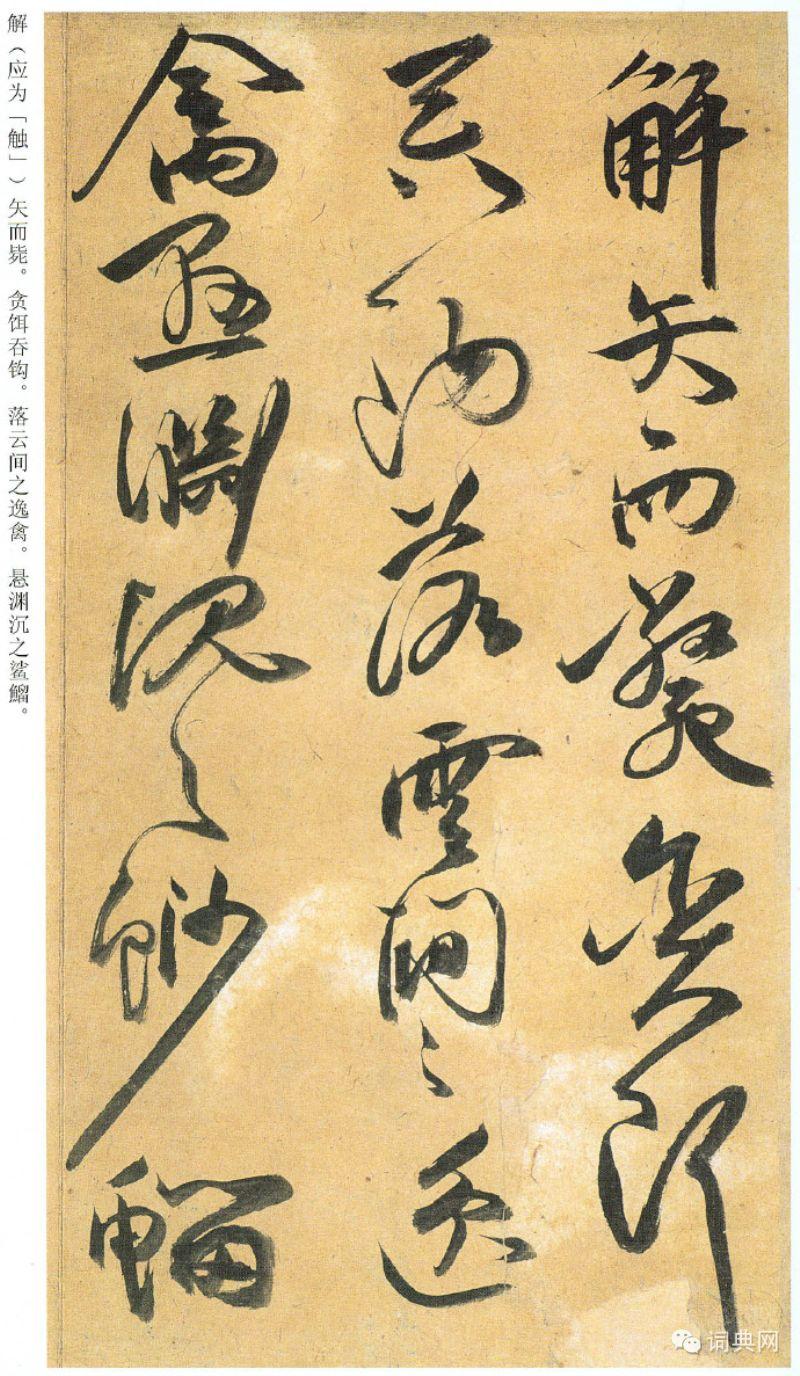 解矢而斃貪餌
吞鈎落雲間之逸
禽懸淵沉之魦鰡
解（应为「触」）矢而毙。贪饵吞钩。落云间之逸禽。悬渊沉之鲨鰡。
词典网